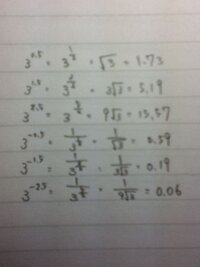 3^0.5 = 3^(1/2) = √3 = 1.73
3^1.5 = 3^(3/2) = 3√3 = 5.19
3^2.5 = 3^(5/2) = 9√3 = 15.57
3^-0.5 = 1/3^(1/2) = 1/√3 = 0.59
3^-1.5 = 1/3^(3/2) = 1/3√3 = 0.19
3^-2.5 = 1/3^(5/2) = 1/9√3 = 0.06